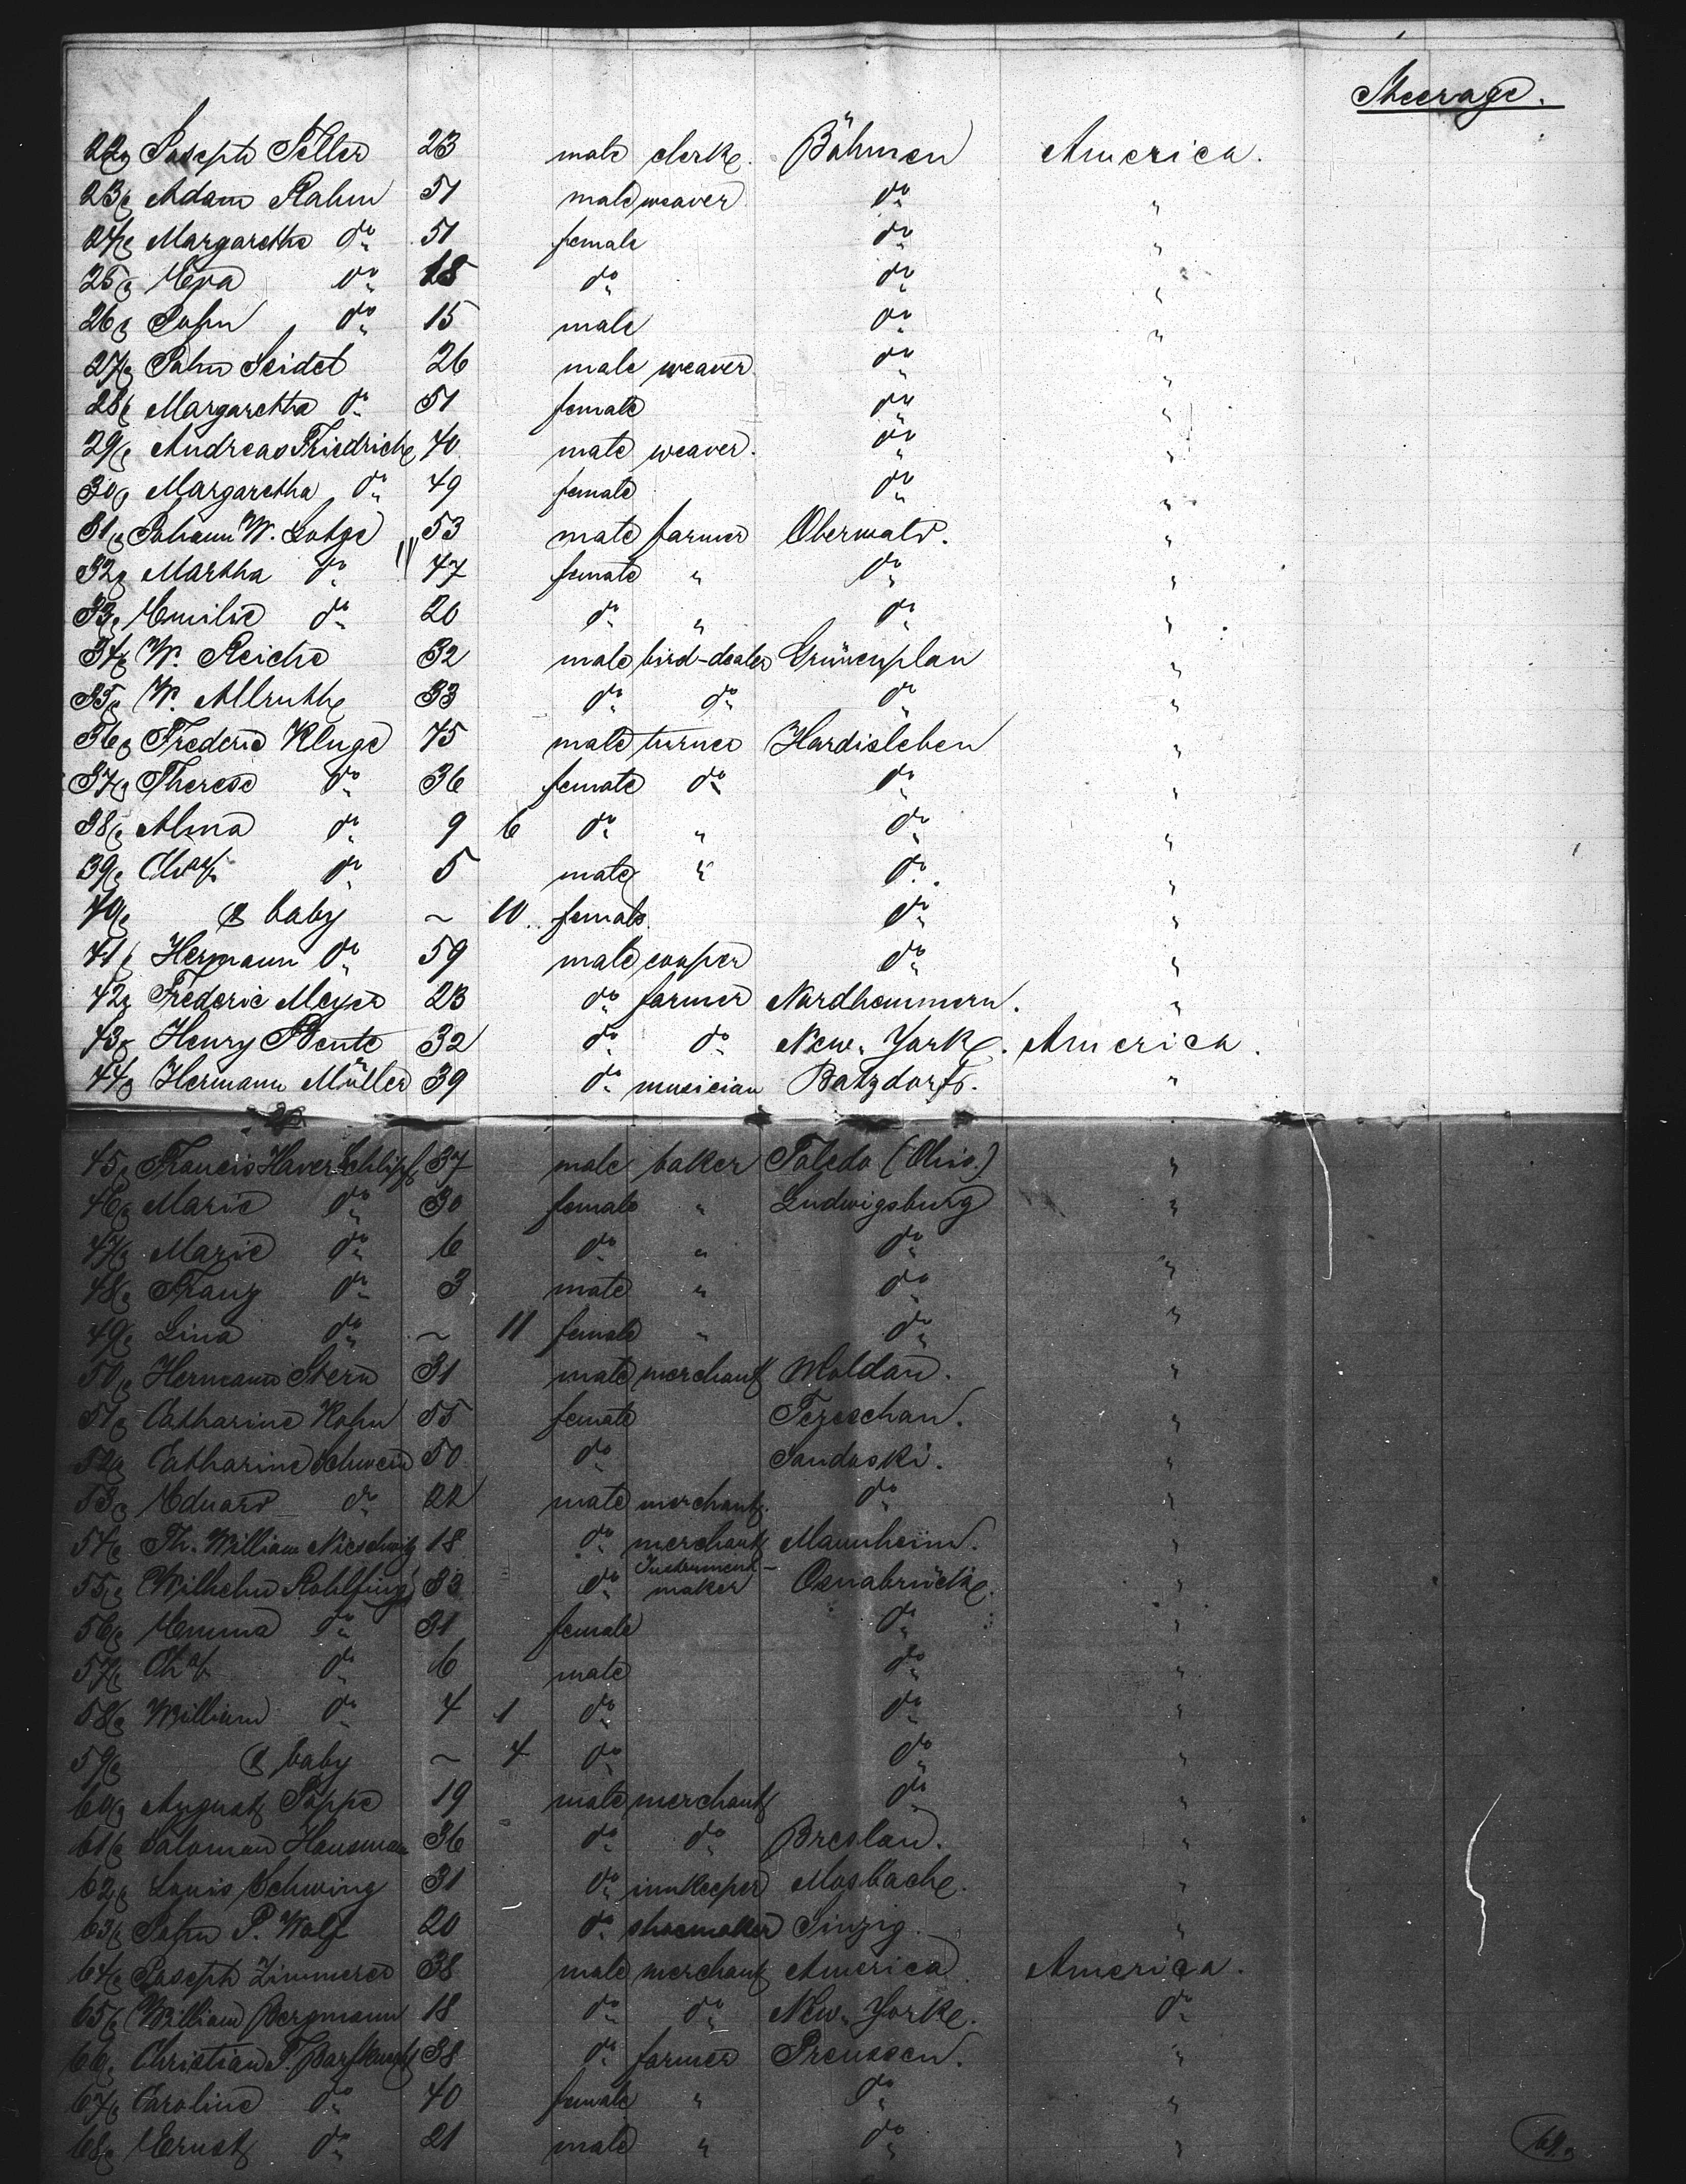 Steerage.
22, Joseph Teller 23 male clerk. Böhmen America.
23, Adam Rahm 51 male weaver do „
24, Margaretha do 51 female do „
25, Eva do 18 do do „
26, John do 15 male do „
27, John Seidel 26 male weaver. do „
28, Margaretha do 51 female do „
29, Andreas Friedrich 40 male weaver. do „
30, Margaretha do 49 female do „
31, Johann W. Lotze 53 male farmer Oberwald. „
32, Martha do 47 female „ do „
33, Emilie do 20 do „ do „
34, W. Reiche 32 male bird-dealer Grünenplan „
35, W. Allruth 33 do do do „
36, Frederic Kluge 45 male turner Hardisleben „
37, Therese do 36 female do do „
38, Alma do 9 6 do „ do „
39, Chas. do 5 male „ do „
40, & baby ~ 10 female do „
41, Hermann do 59 male cooper do „
42, Frederic Meyer 23 do farmer Nordhemmern. „
43, Henry Bente 32 do do New-York. America.
44, Hermann Müller 39 do musician Batzdorf. „
45, Francis Xaver Schlipf 37 male baker Toledo (Ohio.) „
46, Marie do 30 female „ Ludwigsburg „
47, Marie do 6 do „ do „
48, Franz do 3 male „ do „
49, Lina do ~ 11 female „ do „
50, Hermann Stern 31 male merchant Moldau. „
51, Catharine Kohn 55 female Tereschau. „
52, Catharine Schwein 50 do Sanduski. „
53, Eduard do 22 male merchant. do „
54, Th. William 18 do merchant Mannheim. „
55, Wilhelm Rohlfing 33 do Instrument-maker Osnabrück. „
56, Emma do 31 female do „
57, Chas. do 6 male do „
58, William do 4 1 do do „
59, & baby ~ 4 do do „
60, August Poppe 19 male merchant do „
61, Salomon Hausmann 36 do do Breslau. „
62, Louis Schwing 31 do innkeeper Mosbach. „
63, John P. Wolf 20 do shoemaker Sinzig. „
64, Joseph Zimmerer 38 male merchant America America.
65, William Bergmann 18 do do New-York. do
66, Christian F. 38 do farmer Preussen. „
67, Caroline do 40 female „ do „
68, Ernst do 21 male „ do „